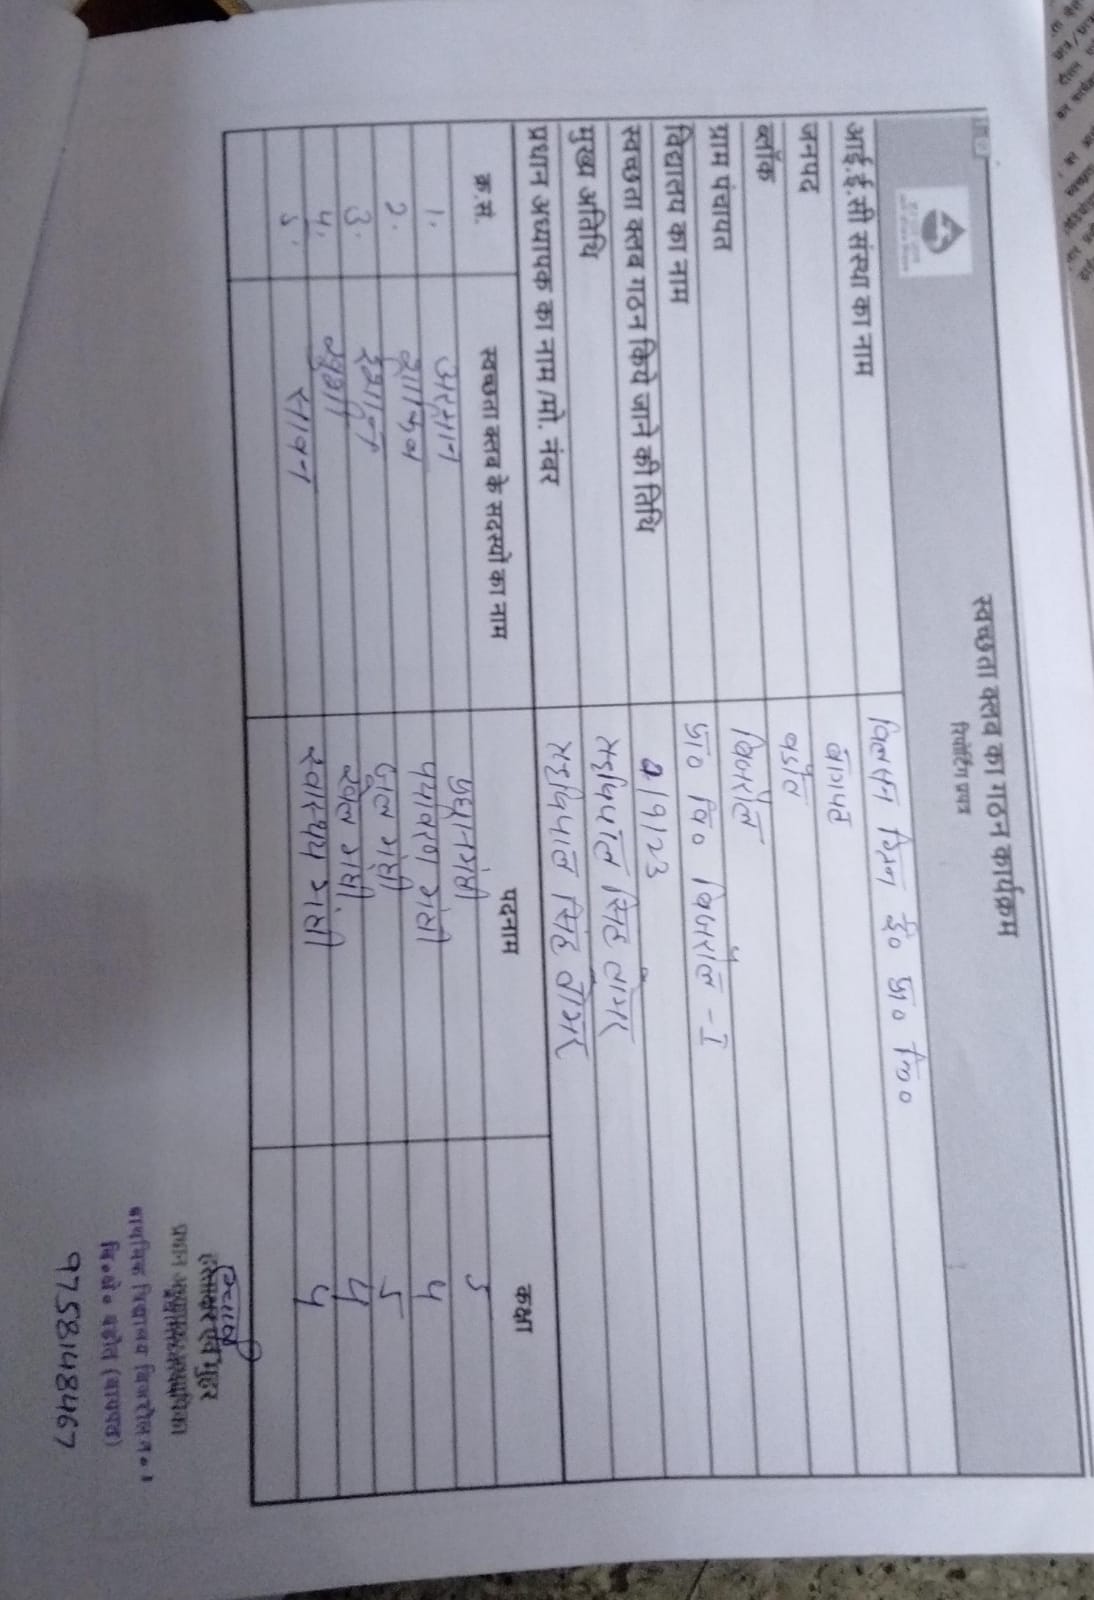 स्वच्छता क्लब का गठन कार्यक्रम
रिपोर्टिंग प्रपत्र
आई.ई.सी संस्था का नाम
जनपद बागपत
ब्लॉक बड़ौत
ग्राम पंचायत बिजरौल
विद्यालय का नाम प्रा० वि० बिजरौल - I
स्वच्छता क्लब गठन किये जाने की तिथि 2/9/23
मुख्य अतिथि सिंह तोमर
प्रधान अध्यापक का नाम/मो. नंबर सिंह तोमर
क्र.सं. स्वच्छता क्लब के सदस्यों का नाम पदनाम कक्षा
1. अरमान प्रधानमंत्री 5
2. मंत्री 4
3. मंत्री 5
4. खुशी खेल मंत्री 4
5. सावन स्वास्थ्य मंत्री 4
हस्ताक्षर एवं मुहर
प्राथमिक विद्यालय बिजरौल न० 1
वि.क्षे. बडौत (बागपत)
9758148467